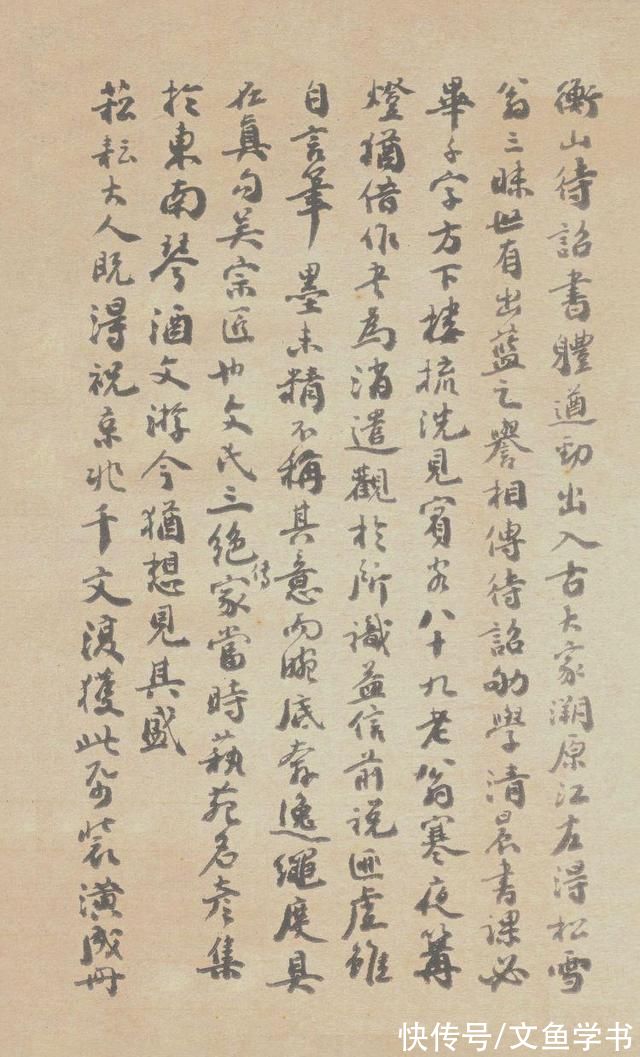 衡山待詔書體遒勁出入古大家溯原江左得松雪
翁三昧世有出藍之譽相傳待詔劬學清晨書課必
畢千字方下樓梳洗見賓客八十九老翁寒夜篝
燈猶借作書為消遣觀於所識益信前說匪虛雖
自言筆墨未精不稱其意而腕底奔逸繩度具
在真勾吳宗匠也文氏三絕家當時藝苑名彥集
傳
於東南琴酒文游今猶想見其盛
菘耘大人既得祝京兆千文復獲此本裝潢成冊
快传号/文鱼学书